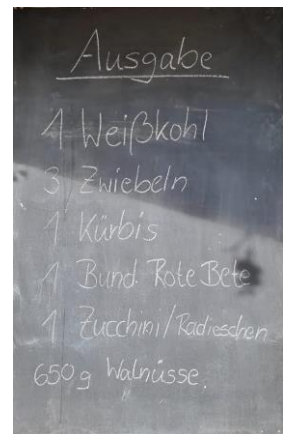 Ausgabe
1 Weißkohl
3 Zwiebeln
1 Kürbis
1 Bund Rote Bete
1 Zucchini/Radieschen
650 g Walnüsse.